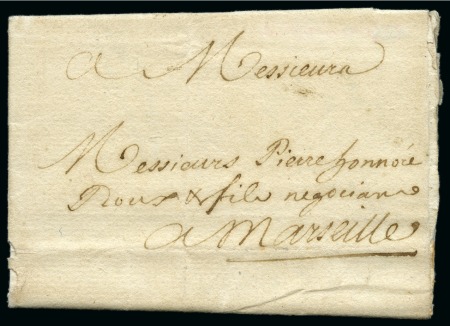 A Messieurs
Messieurs Pierre honnoré
Roux & fils negocians
a Marseille